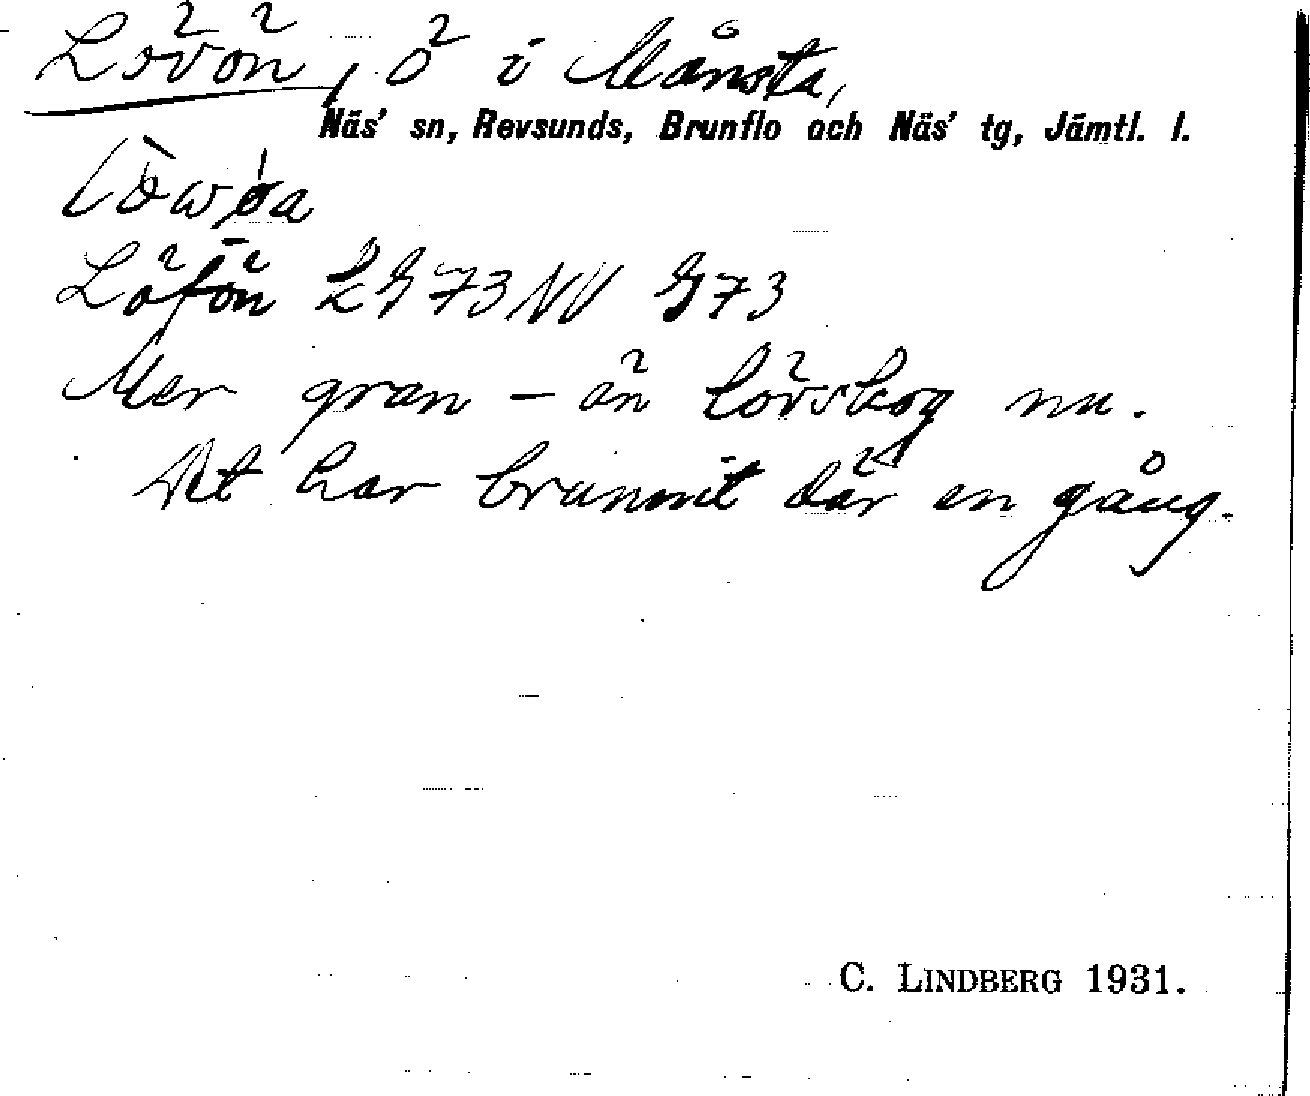 Lövön, ö i Månsta,
Näs' sn, Revsunds, Brunflo och Näs' tg, Jämtl. l.
Löfön LG 73 NV G 73
Mer gran – än lövskog nu.
Det har brunnit där en gång.
C. LINDBERG 1931.